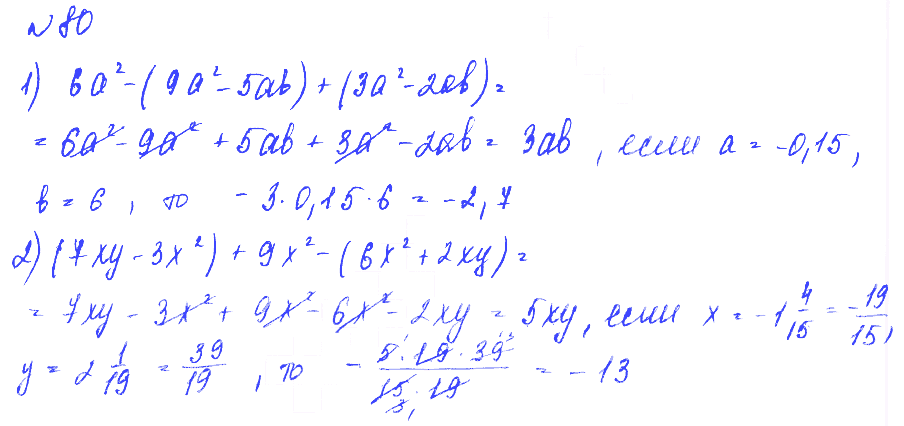 №80
1) 6a² - (9a² - 5ab) + (3a² - 2ab) =
= 6a² - 9a² + 5ab + 3a² - 2ab = 3ab, если a = -0,15,
b = 6, то - 3·0,15·6 = -2,7
2) (7xy - 3x²) + 9x² - (6x² + 2xy) =
= 7xy - 3x² + 9x² - 6x² - 2xy = 5xy, если x = -1 4/15 = -19/15,
y = 2 1/19 = 39/19, то - 5·19·39/15·19 = -13